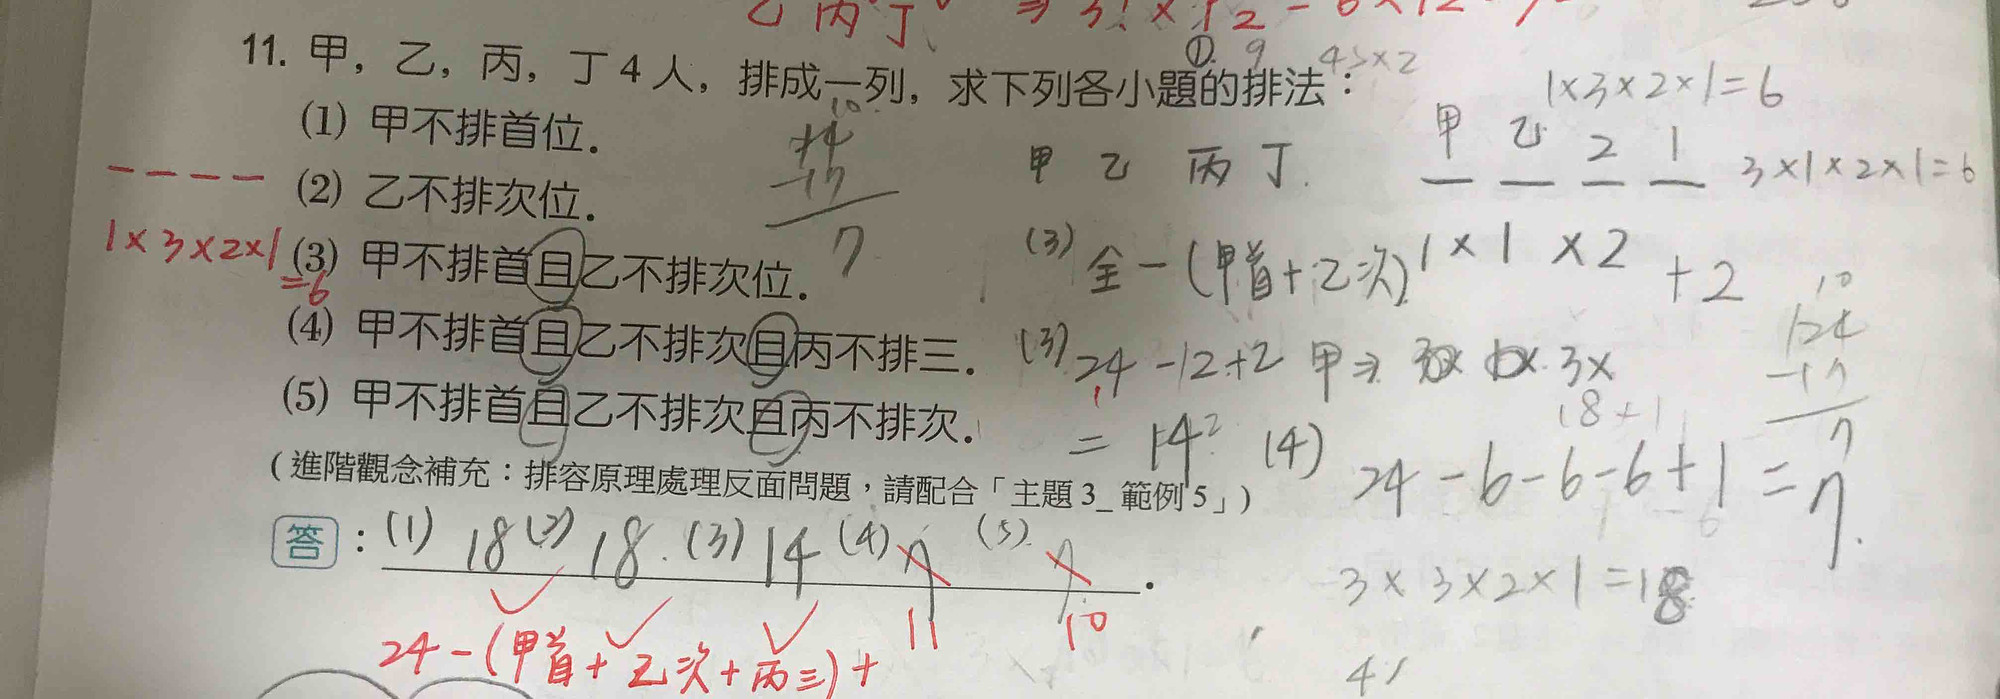 乙 丙 丁
11. 甲，乙，丙，丁 4 人，排成一列，求下列各小題的排法：
① 9
(1) 甲不排首位．
(2) 乙不排次位．
(3) 甲不排首且乙不排次位．
(4) 甲不排首且乙不排次且丙不排三．
(5) 甲不排首且乙不排次且丙不排次．
(進階觀念補充：排容原理處理反面問題，請配合「主題 3_ 範例 5」)
答：(1) 18 (2) 18. (3) 14 (4) 7 (5)
11 10
24-(甲首+乙次+丙三)+
1×3×2×1
=6
-17
7
甲 乙 丙 丁.
1×3×2×1=6
甲 乙 2 1
3×1×2×1=6
(3) 全-(甲首+乙次) 1×1×2 +2
(3) 24-12+2
= 14
10
124
-17
7
18+1
(4) 24-6-6-6+1=7.
3×3×2×1=18